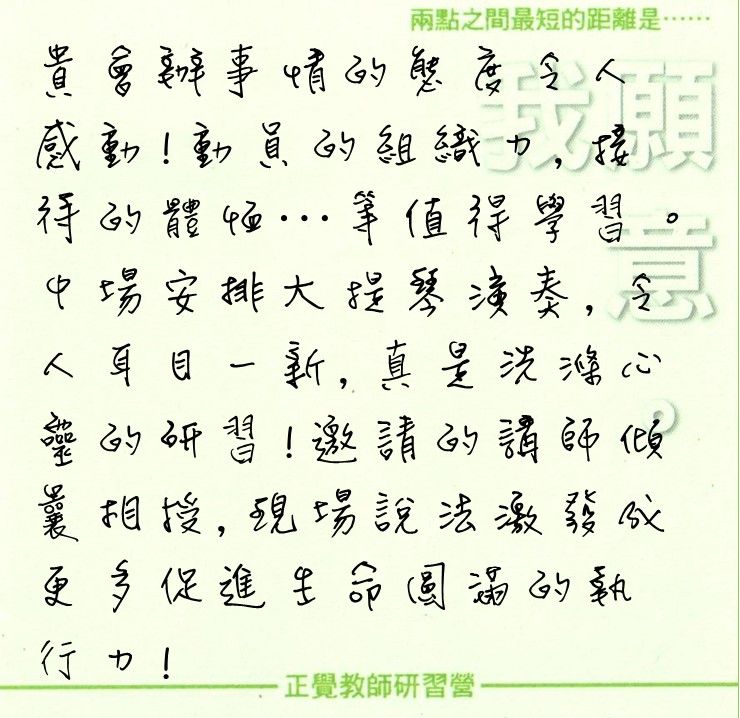 兩點之間最短的距離是……
我願意。
貴會辦事情的態度令人
感動！動員的組織力，接
待的體恤…等值得學習。
中場安排大提琴演奏，令
人耳目一新，真是洗滌心
靈的研習！邀請的講師傾
囊相授，現場說法激發成
更多促進生命圓滿的執
行力！
正覺教師研習營